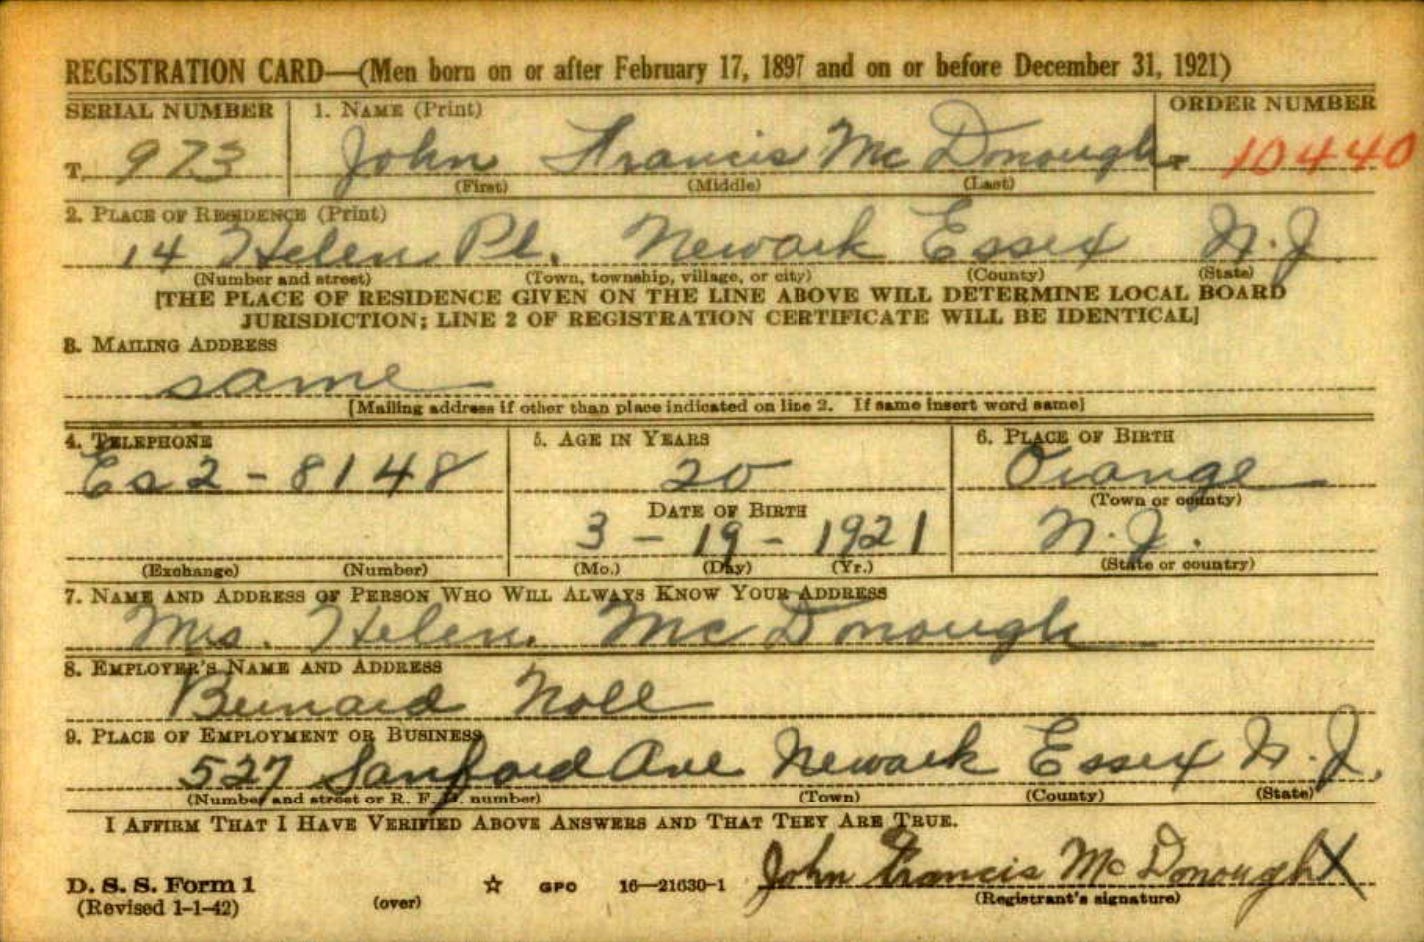 REGISTRATION CARD—(Men born on or after February 17, 1897 and on or before December 31, 1921)
SERIAL NUMBER 1. NAME (Print) ORDER NUMBER
T 973 John Francis McDonough 10440
(First) (Middle) (Last)
2. PLACE OF RESIDENCE (Print)
14 Helen Pl. Newark Essex N.J.
(Number and street) (Town, township, village, or city) (County) (State)
[THE PLACE OF RESIDENCE GIVEN ON THE LINE ABOVE WILL DETERMINE LOCAL BOARD
JURISDICTION; LINE 2 OF REGISTRATION CERTIFICATE WILL BE IDENTICAL]
3. MAILING ADDRESS
same
[Mailing address if other than place indicated on line 2. If same insert word same]
4. TELEPHONE 5. AGE IN YEARS 6. PLACE OF BIRTH
Es 2 - 8148 20 Orange
(Town or county)
DATE OF BIRTH
3 - 19 - 1921 N.J.
(Exchange) (Number) (Mo.) (Day) (Yr.) (State or country)
7. NAME AND ADDRESS OF PERSON WHO WILL ALWAYS KNOW YOUR ADDRESS
Mrs. Helen McDonough
8. EMPLOYER'S NAME AND ADDRESS
Bernard Noll
9. PLACE OF EMPLOYMENT OR BUSINESS
527 Sanford Ave Newark Essex N.J.
(Number and street or R. F. D. number) (Town) (County) (State)
I AFFIRM THAT I HAVE VERIFIED ABOVE ANSWERS AND THAT THEY ARE TRUE.
John Francis McDonough X
D. S. S. Form 1 (over) ☆ GPO 16—21630-1 (Registrant's signature)
(Revised 1-1-42)